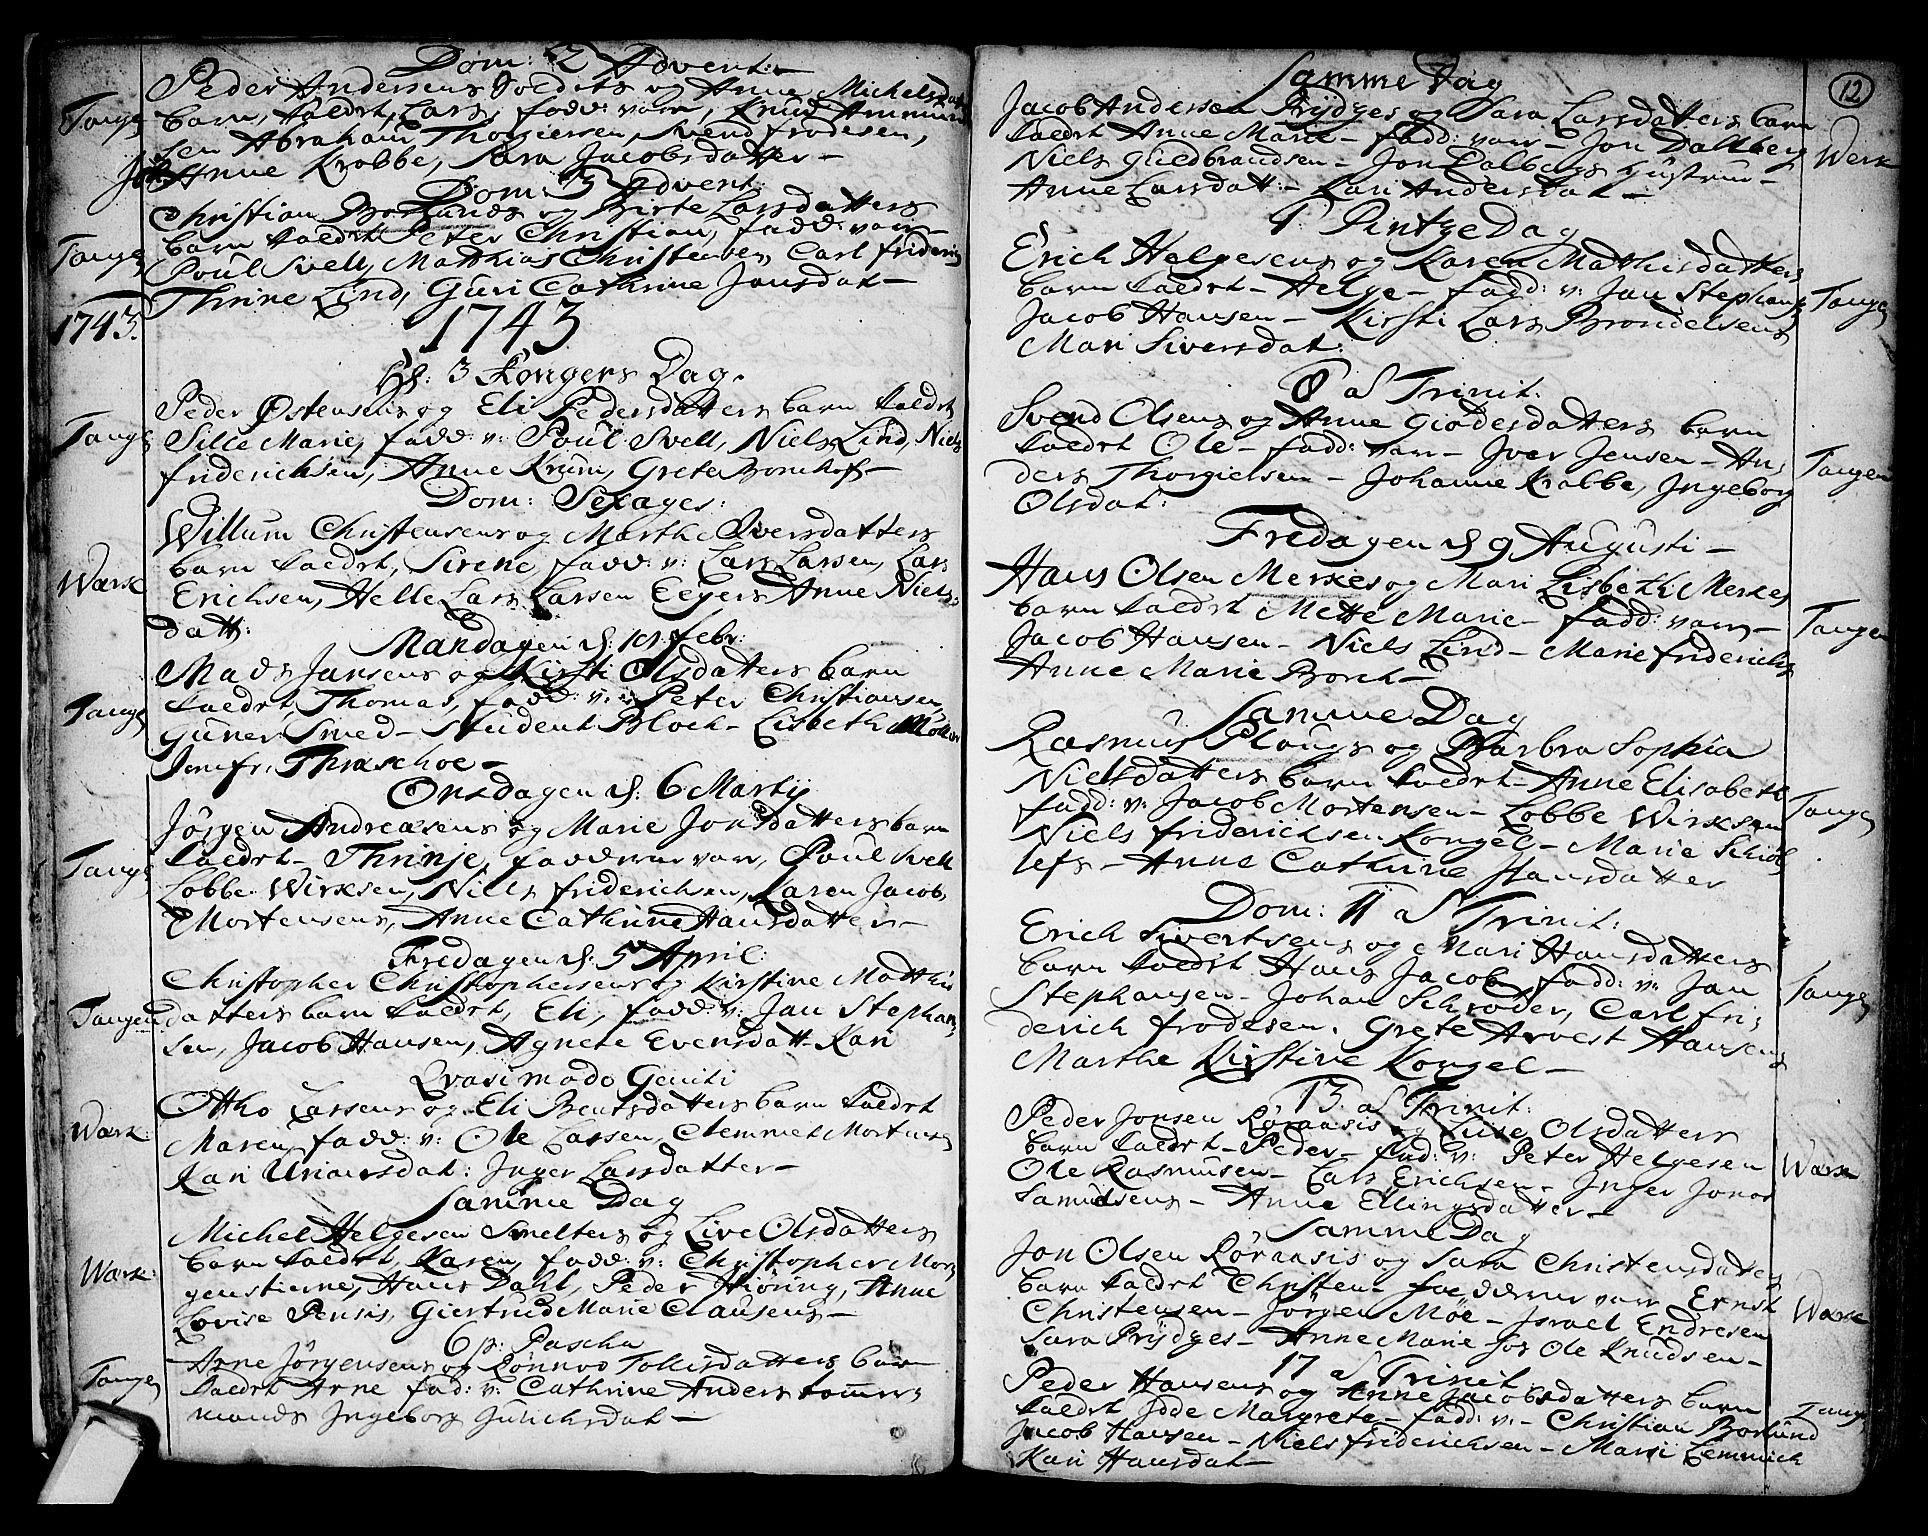 Dom: 2 Advent:
Peder Andersens Soldats og Anne Michelsdatt
Tangen
barn, kaldet, Lars, fadd: vare, Knud Ammun
sen Abraham Thorgiersen, Svend frodesen,
Anne Krabbe, Sara Jacobsdatter —
Dom: 3 Advent:
Christian Borlunds og Birte Larsdatters
Tangen
barn kaldet Peter Christian, fadd: vare —
Poul Svell, Matthias Christensen, Carl friderich
Thrine Lind, Guri Cathrine Jansdat —
1743.
1743
H: 3 Kongers Dag.
Peder Østensens og Eli Pedersdatters barn kaldet
Tangen
Sille Marie, fadd: v: Poul Svell, Niels Lind, Niels
friderichsen, Anne Krum, Greta Bomhoff —
Dom: Sexages:
Willum Christensens og Marthe Iversdatters
Wærk
barn kaldet, Sirene, fadd: v: Lars Larsen, Lars
Erichsen, Helle Lars Larsen Eegers Anne Niels-
datt:
Mandagen d: febr:
Mads Jansens og Kirsti Olsdatters barn
Tangen
kaldet, Thomas, fadd: v: Peter Christiansen,
Guner Smed — Student Bloch — Lisbeth Möller
Jomfr: —
Onsdagen d: 6 Martij
Jörgen Andreæsens og Marie Jonsdatters barn
Tangen
kaldet — Thrinje, fadderne vare, Poul Svell
Lobbe Wirksen, Niels friderichsen, Karen Jacob
Mortensens, Anne Cathrine Hansdatter —
Fredagen d: 5 April:
Christopher Christophersens og Kirstine Matthis
Tangen
datters barn kaldet, Eli, fadd: v: Jan Stephan-
sen, Jacob Hansen, Agnete Evensdatt Kari
Qvasimodo Geniti
Ottho Larsens og Eli Bentsdatters barn kaldet
Wærk
Maren, fadd: v: Ole Larsen, Clemmet Mortensen
Kari Unarsdat: Inger Larsdatter —
Samme Dag
Michel Helgesen Smelters og Live Olsdatters
Wærk:
barn kaldet, Karen, fadd: v: Christopher Mor-
genstierne, Hans Dahl, Peder Hiöring, Anne
Lovise Pensis, Giertrud Marie Clausens —
6 p: Pascha
Arne Jörgensens og Rönnov Tollisdatters barn
Tangen
kaldet Arne fad: v: Cathrine Anders tömmer-
mands Ingeborg Gulichsdat —
12
Samme Dag
Jacob Andersen Prydzes og Sara Larsdatters barn
kaldet Anne Marie — fadd: var — Jon Dallberg
Werk
Niels Guldbrandsen — Jon Dalbergs Hustrue —
Anne Larsdatt: — Kari Andersdat —
1 Pintze Dag
Erich Helgesens og Karen Mathisdatters
barn kaldet — Helge — fadd: v: Jan Stephans
Tangen
Jacob Hansen — Kirsti Lars Brondelsens
Mari Siversdat:
8 af Trinit:
Svend Olsens og Anne Giödesdatters barn
kaldet Ole — fadd: vare — Iver Jensen — An-
Tangen
ders Thorgielsen — Johanne Krabbe, Ingeborg
Olsdat:
Fredagen d 9 Augusti —
Hans Olsen Merkes og Mari Lisbeth Merkes
barn kaldet Mette Marie — fadd: vare —
Tangen
Jacob Hansen — Niels Lind — Marie friderichs
Anne Marie Borch —
Samme Dag
Rasmus Plougs og Barbra Sophia
Nielsdatters barn kaldet — Anne Elisabeth
fadd: v: Jacob Mortensen — Lobbe Wirksen
Tangen
Niels friderichsen Kongel — Marie Schiöt
lefs — Anne Cathrine Hansdatter
Dom: 11 af Trinit:
Erich Sivertsens og Mari Hansdatters
barn kaldet Hans Jacob, fadd: v: Jan
Tangen
Stephansen — Johan Schröder, Carl fri-
derich frodesen. Grete Arvest Hansens
Marthe Kirstine Kongel —
13 af Trinit:
Peder Jonsen Röraasis og Luise Olsdatters
barn kaldet — Peder — fad: v: Peter Helgesen
Wærk
Ole Rasmusen — Lars Erichsen — Inger Jonas
Samuelsens — Anne Ellingsdatter —
Samme Dag
Jon Olsen Röraasis og Sara Christensdatters
barn kaldet Christen — fadderne vare Ernst
Wærk
Christensen — Jörgen Möe — Israel Endresen
Sara Prydzes — Anne Marie for Ole Knudsen —
17 af Trinit:
Peder Hansens og Anne Jacobsdatters barn
kaldet Idde Margrete — fadd: v: — Christian Borlund
Tangen
Jacob Hansen — Niels friderichsen — Mari Lemmich
Kari Hansdat —